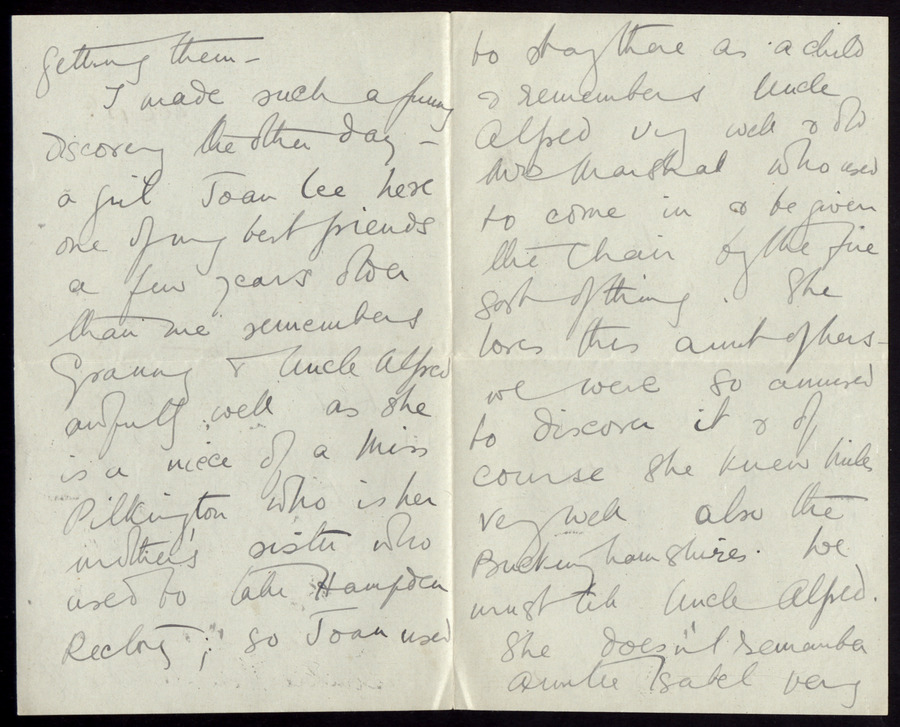 getting them –
I made such a funny
discovery the other day –
a girl Joan Lee here
one of my best friends
a few years older
than me remembers
Granny & Uncle Alfred
awfully well as she
is a niece of a Miss
Pilkington who is her
mother's sister who
used to take Hampden
Rectory; so Joan used
to stay there as a child
& remembers Uncle
Alfred very well & old
Mrs Marshal who used
to come in & be given
the chair by the fire
sort of thing. She
loves this aunt of hers –
we were so amused
to discover it & of
course she knew
very well also the
Buckinghamshires. We
must tell Uncle Alfred.
She doesn't remember
Auntie Isabel very